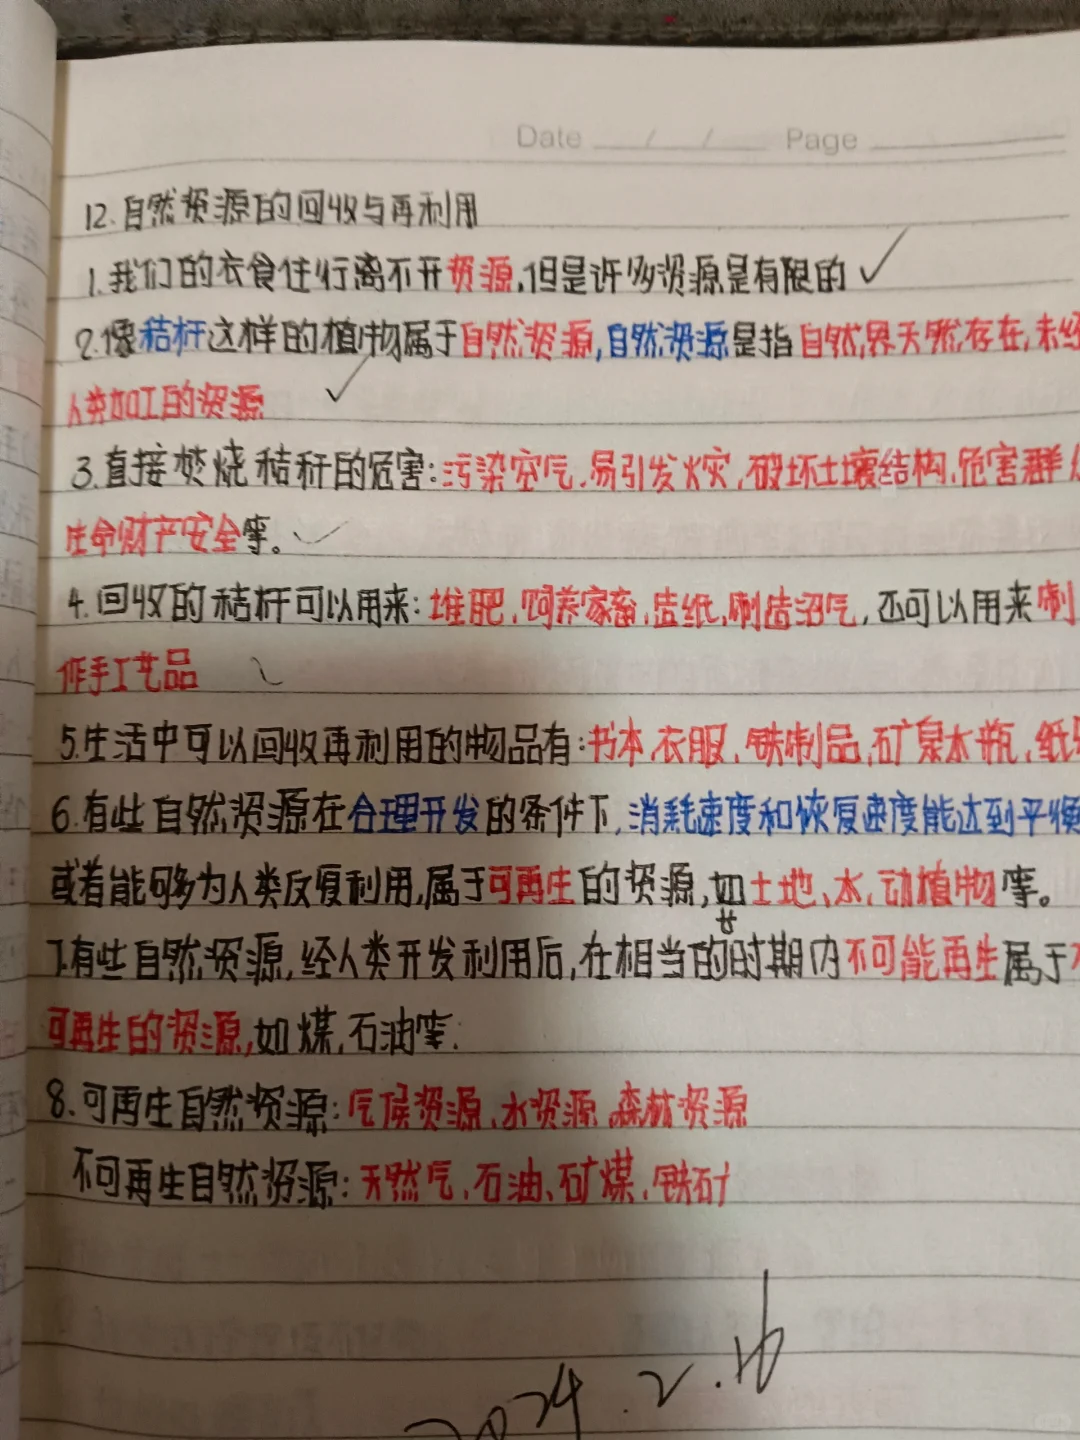 Date / / Page
12.自然资源的回收与再利用
1.我们的衣食住行离不开资源,但是许多资源是有限的
2.像秸秆这样的植物属于自然资源,自然资源是指自然界天然存在,未经
人类加工的资源
3.直接焚烧秸秆的危害:污染空气,易引发火灾,破坏土壤结构,危害群
生命财产安全等。
4.回收的秸秆可以用来:堆肥,饲养家畜,造纸,制造沼气,还可以用来制
作手工艺品
5.生活中可以回收再利用的物品有:书本、衣服、铁制品,矿泉水瓶、纸
6.有些自然资源在合理开发的条件下,消耗速度和恢复速度能达到平衡
或者能够多为人类反复利用,属于可再生的资源,如土地、水、动植物等。
7.有些自然资源,经人类开发利用后,在相当的时期内不可能再生属于不
可再生的资源,如煤,石油等.
8.可再生自然资源:气候资源、水资源、森林资源
不可再生自然资源:天然气、石油、矿煤、铁矿
2024.2.16